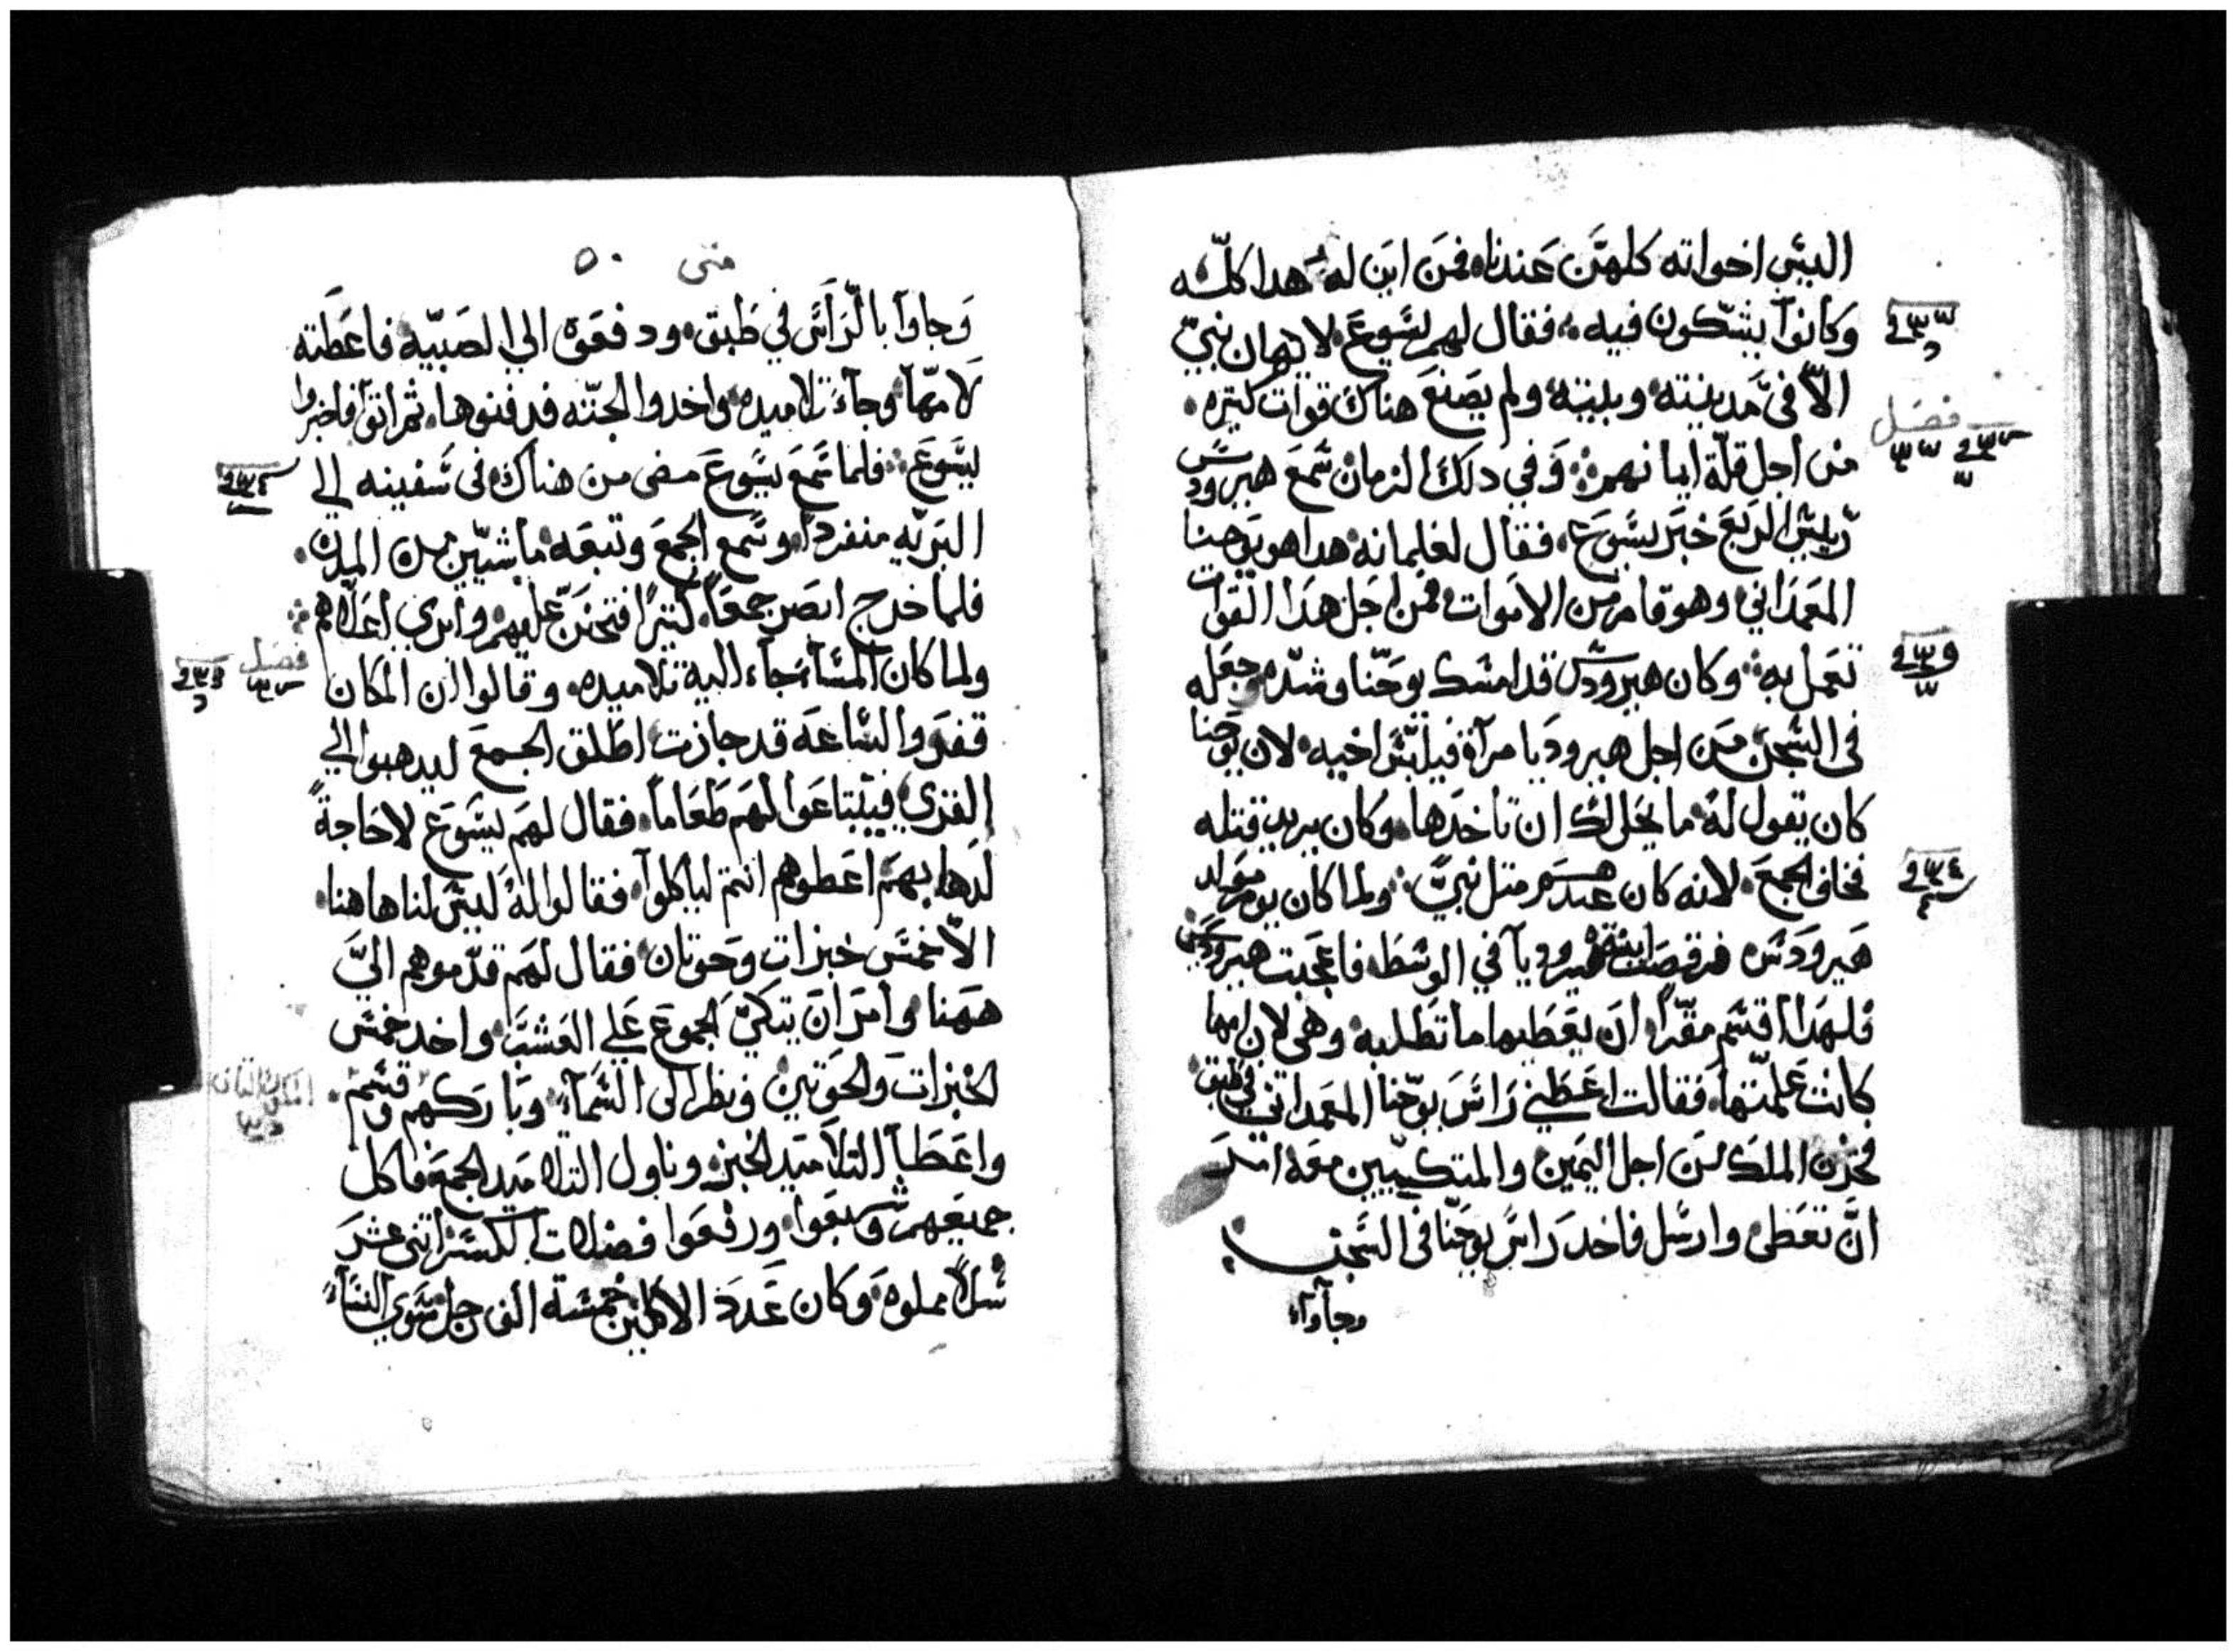 اليس اخواته كلهن عندنا فمن اين له هدا كله
وكانوا يشكون فيه فقال لهم يسوع لا يهان نبي
الا في مدينته وبيته ولم يصنع هناك قوات كتيره
من اجل قلة ايمانهم وفي دلك الزمان سمع هيرودس
رييس الربع خبر يسوع فقال لغلمانه هدا هو يوحنا
المعمداني وهو قام من الاموات فمن اجل هدا القوات
تعمل به وكان هيرودس قد امسك يوحنا وشده وجعله
في السجن من اجل هيروديا مرآة فيلبس اخيه لان يوحنا
كان يقول له ما يحل لك ان تاخدها وكان يريد قتله
فخاف الجمع لانه كان عندهم متل نبي ولما كان يوم مولد
هيرودس فرقصت ابنة هيروديا في الوسط فاعجبت هيرودس
فلهدا اقسم مقرا ان يعطيها ما تطلبه وهي لان امها
كانت علمتها فقالت اعطني راس يوحنا المعمداني في طبق
فحزن الملك من اجل اليمين والمتكيين معه امر
ان تعطي وارسل فاخد راس يوحنا في السجن
وجاوا
متى ٥٠
وجاوا بالراس في طبق ودفعوه الي الصبيه فاعطته
لامها وجآء تلاميده واخدوا الجتته فدفنوها ثم اتوا فاخبروا
يسوع فلما سمع يسوع مضى من هناك في سفينه الي
البريه منفردا وسمع الجمع وتبعه ماشيين من المدن
فلما خرج ابصر جمعا كتيرا فتحنن عليهم وابري اعلاهم
ولما كان المسآء جآء اليه تلاميده وقالوا ان المكان
قفر والساعه قد جازت اطلق الجمع ليدهبوا الي
القري فيبتاعوا لهم طعاما فقال لهم يسوع لا حاجة
لدهابهم اعطوهم انتم لياكلوا فقالوا له ليس لنا هاهنا
الا خمس خبزات وحوتان فقال لهم قدموهم الي
ههنا وامر ان يتكي الجموع علي العشب واخد خمس
الخبزات والحوتين ونظر الى السمآء وباركهم وقسم
واعطا التلاميد الخبز وناول التلاميد الجمع فاكل
جميعهم وشبعوا ورفعوا فضلات الكسر اتني عشر
سلا مملوه وكان عدد الاكلين خمسة الف رجل سوي النسآء
فصل
فصل